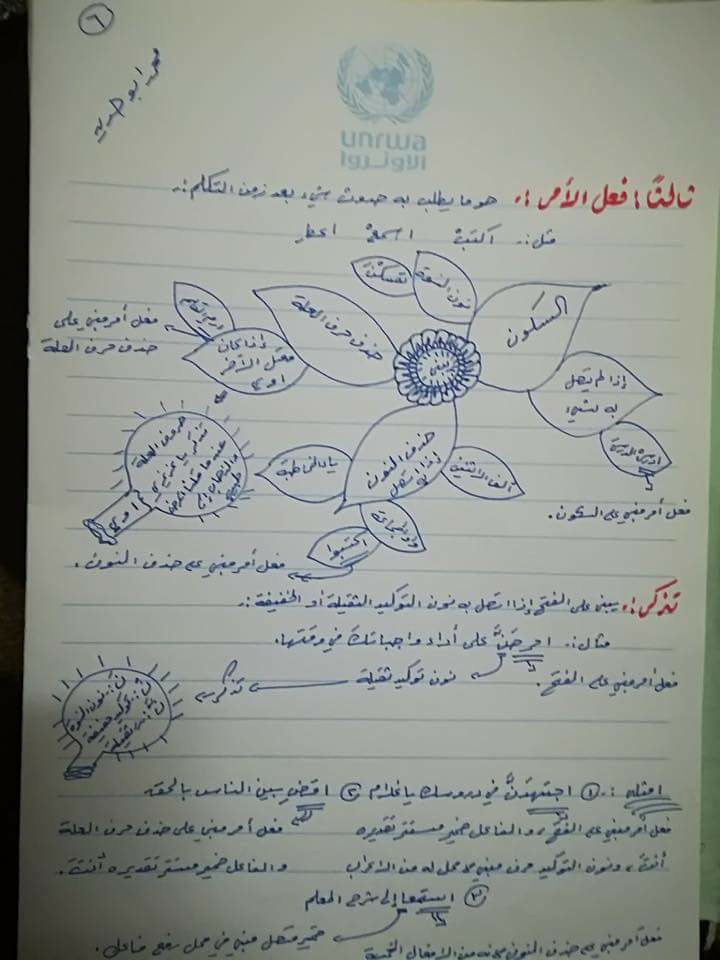 ٦
unrwa
الأونروا
ثالثًا: فعل الأمر: هو ما يطلب به حدوث شيء بعد زمن التكلم:.
مثل:. اكتبْ اسمعْ
السكون
نون النسوة
حذف حرف العلة
يبنى
إذا لم يتصل به شيء
إذا كان معتل الآخر اوي
فعل أمر مبني على حذف حرف العلة
فعل أمر مبني على السكون.
حذف النون إذا اتصل به
ألف الاثنين
ياء المخاطبة
واو الجماعة
اكتبوا
فعل أمر مبني على حذف النون.
حروف العلة
تذكر يا عزيزي
اوي
تذكر:. يبنى على الفتح إذا اتصل به نون التوكيد الثقيلة أو الخفيفة:.
مثال:. احرصَنَّ على أداء واجباتك في وقتها.
فعل أمر مبني على الفتح. نون توكيد ثقيلة تذكر
نَ: نون النسوة
نْ: توكيد خفيفة
نَّ: ثقيلة
امثله:. ① اجتهدَنَّ في دروسك يا غلام ② اقضِ بين الناس بالحق.
فعل أمر مبني على الفتح، والفاعل ضمير مستتر تقديره فعل أمر مبني على حذف حرف العلة
أنتَ، ونون التوكيد حرف مبني لا محل له من الإعراب والفاعل ضمير مستتر تقديره أنتَ.
③ استمعا إلى شرح المعلم
ضمير متصل مبني في محل رفع فاعل.
فعل أمر مبني على حذف النون لأنه من الأفعال الخمسة